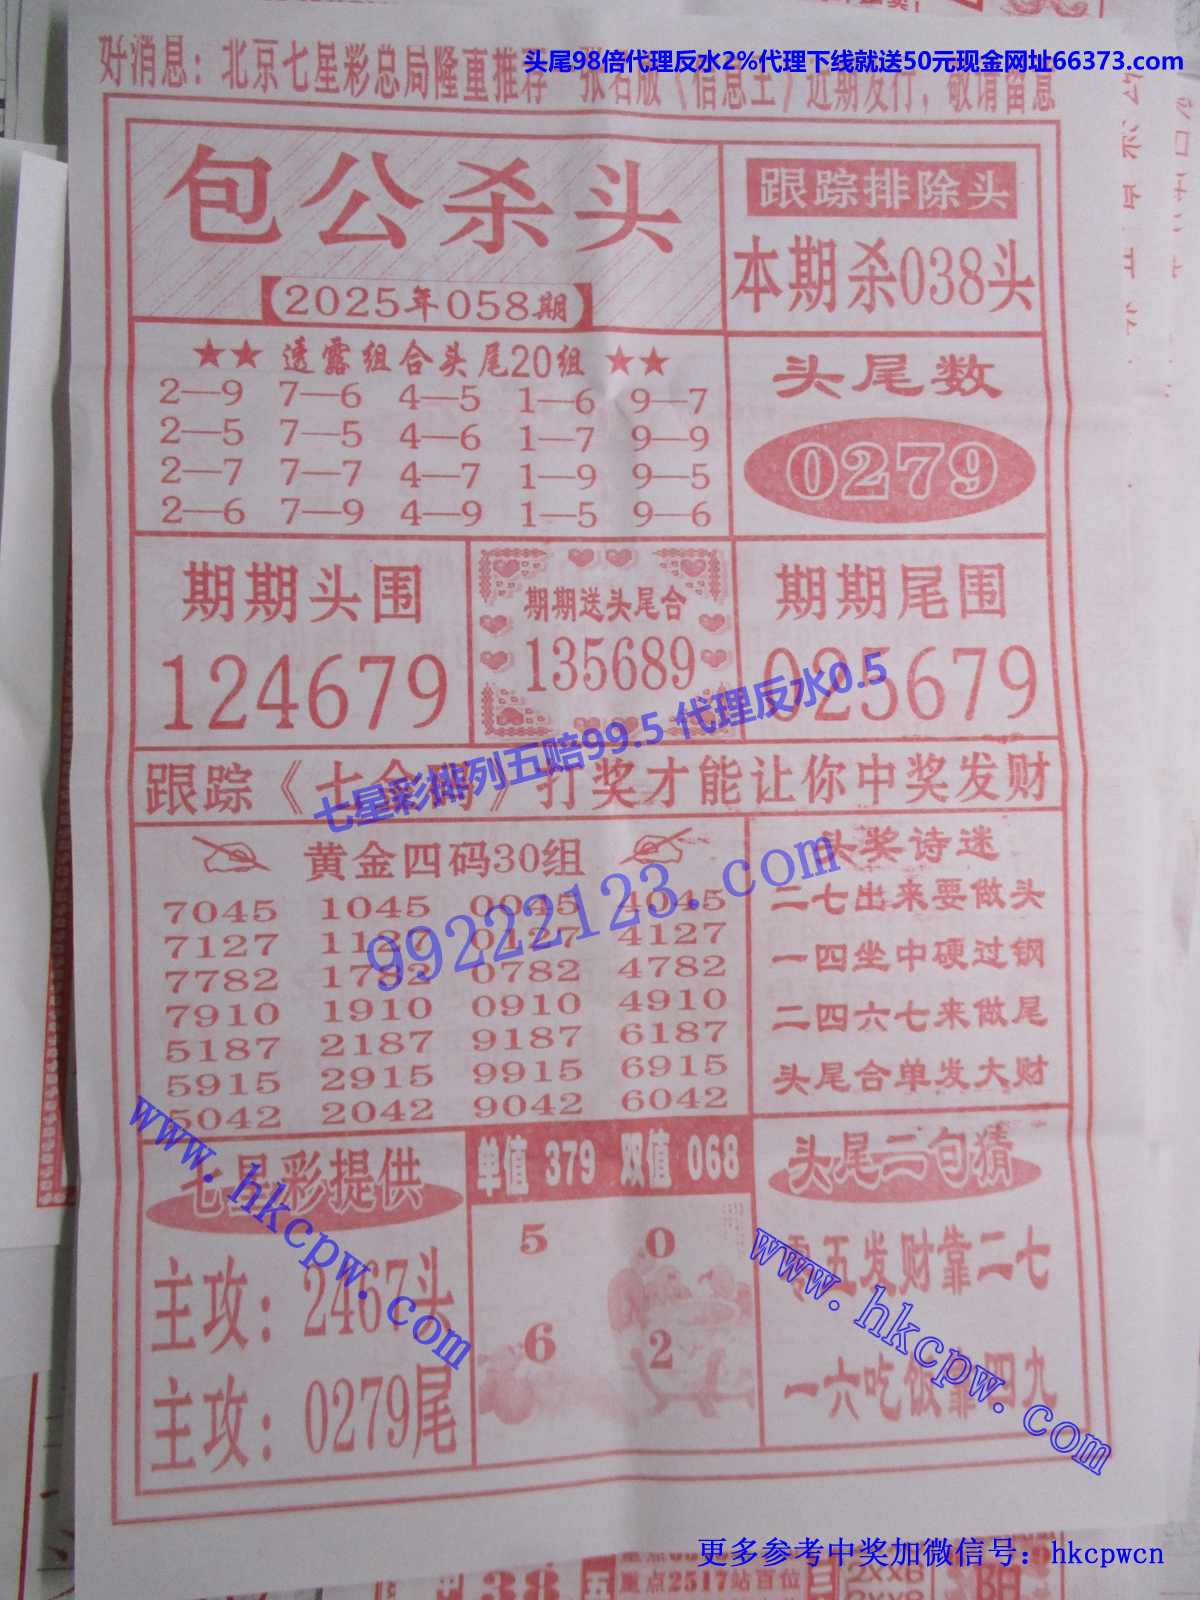 头尾98倍代理反水2%代理下线就送50元现金网址66373.com
好消息：北京七星彩总局隆重推荐一张名版《信息王》近期发行，敬请留意
包公杀头
【2025年058期】
跟踪排除头
本期杀038头
★★ 透露组合头尾20组 ★★
2—9 7—6 4—5 1—6 9—7
2—5 7—5 4—6 1—7 9—9
2—7 7—7 4—7 1—9 9—5
2—6 7—9 4—9 1—5 9—6
头尾数
0279
期期头围
124679
期期送头尾合
135689
期期尾围
025679
七星彩排列五赔99.5 代理反水0.5
跟踪《七合码》打奖才能让你中奖发财
黄金四码30组
7045 1045 0045 4045
7127 1127 0127 4127
7782 1782 0782 4782
7910 1910 0910 4910
5187 2187 9187 6187
5915 2915 9915 6915
5042 2042 9042 6042
99222123.com
头奖诗迷
二七出来要做头
一四坐中硬过钢
二四六七来做尾
头尾合单发大财
七星彩提供
主攻：2467头
主攻：0279尾
www.hkcpw.com
单值 379 双值 068
5 0
6 2
头尾二句猜
零五发财靠二七
一六吃饭靠四九
www.hkcpw.com
更多参考中奖加微信号：hkcpwcn
重点2517站百位